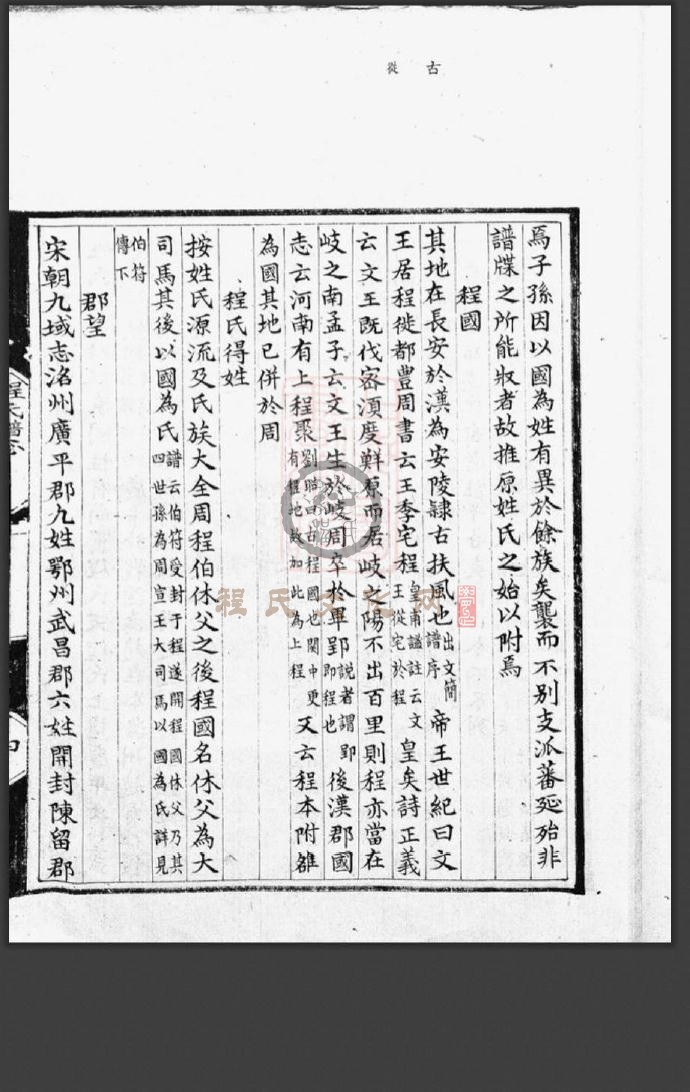 古
從
焉子孫因以國為姓有異於餘族矣襲而不別支派蕃延殆非
譜牒之所能収者故推原姓氏之始以附焉
程國
其地在長安於漢為安陵隸古扶風也出文簡譜序帝王世紀曰文
王居程徙都豐周書云王季宅程皇甫謐註云文王從宅於程皇矣詩正義
云文王既伐密須度鮮原而居岐之陽不出百里則程亦當在
岐之南孟子云文王生於岐周卒於畢郢說者謂郢即程也後漢郡國
志云河南有上程聚劉昭曰古程國也関中更有程地故加此為上程又云程本附雒
為國其地已併於周
程氏得姓
按姓氏源流及氏族大全周程伯休父之後程國名休父為大
司馬其後以國為氏譜云伯符受封于程遂開程國休父乃其四世孫為周宣王大司馬以國為氏詳見
伯符傳下
郡望
宋朝九域志洺州廣平郡九姓鄂州武昌郡六姓開封陳留郡
程氏譜
程氏文化网